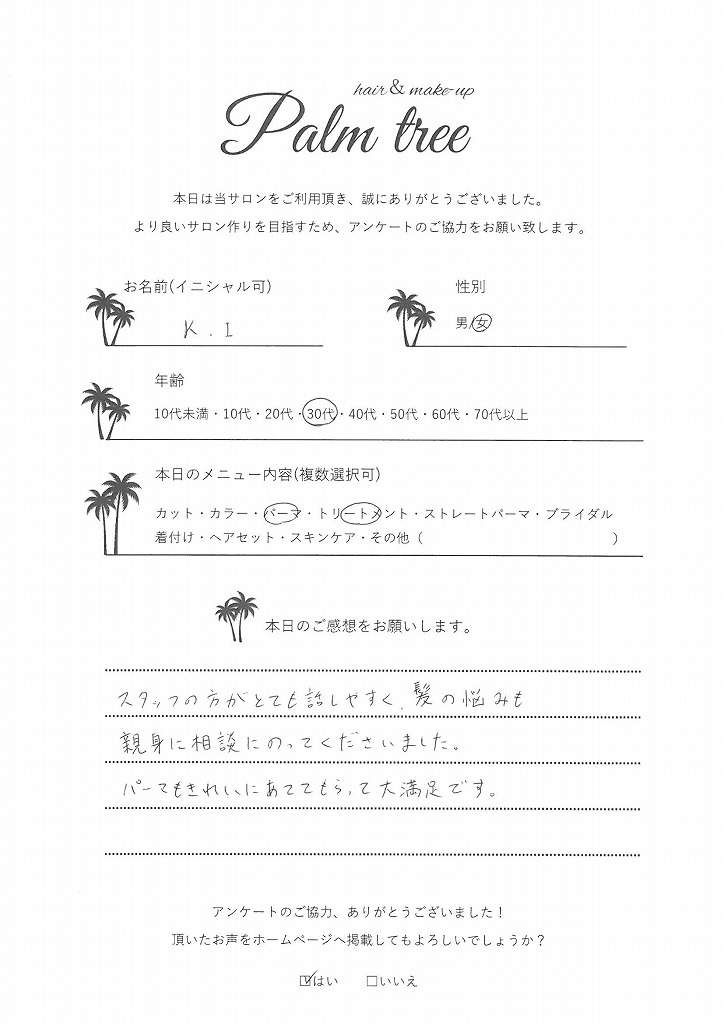 hair & make-up
Palm tree
本日は当サロンをご利用頂き、誠にありがとうございました。
より良いサロン作りを目指すため、アンケートのご協力をお願い致します。
お名前(イニシャル可)
K . I
性別
男/女
年齢
10代未満・10代・20代・30代・40代・50代・60代・70代以上
本日のメニュー内容(複数選択可)
カット・カラー・パーマ・トリートメント・ストレートパーマ・ブライダル
着付け・ヘアセット・スキンケア・その他（　　　　　　　　　　　　）
本日のご感想をお願いします。
スタッフの方がとても話しやすく、髪の悩みも
親身に相談にのってくださいました。
パーマもきれいにあててもらって大満足です。
アンケートのご協力、ありがとうございました！
頂いたお声をホームページへ掲載してもよろしいでしょうか？
☑はい　□いいえ